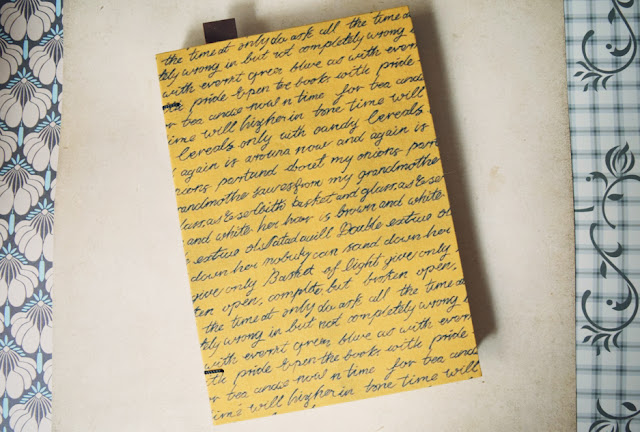 the time at only da ask all the time at
tely wrong in but not completely wrong
with even't green blue as with even
pride open the books with pride
r tea and now n time for tea and
time will higher in tone time will
cereals only with candy cereals
again is around now and again is
onions partund about my onions part
randmother saves from my grandmothe
glass, as basket and glass, as &
and white her hair is brown and white
quill Double
down her nobody can sand down her
give only Basket of light give only
ten open, complete but broken open,
the time at only da ask all the time at
tely wrong in but not completely wrong
with even't green blue as with even
th pride open the books with pride
or tea and now n time for tea and
time will higher in tone time will